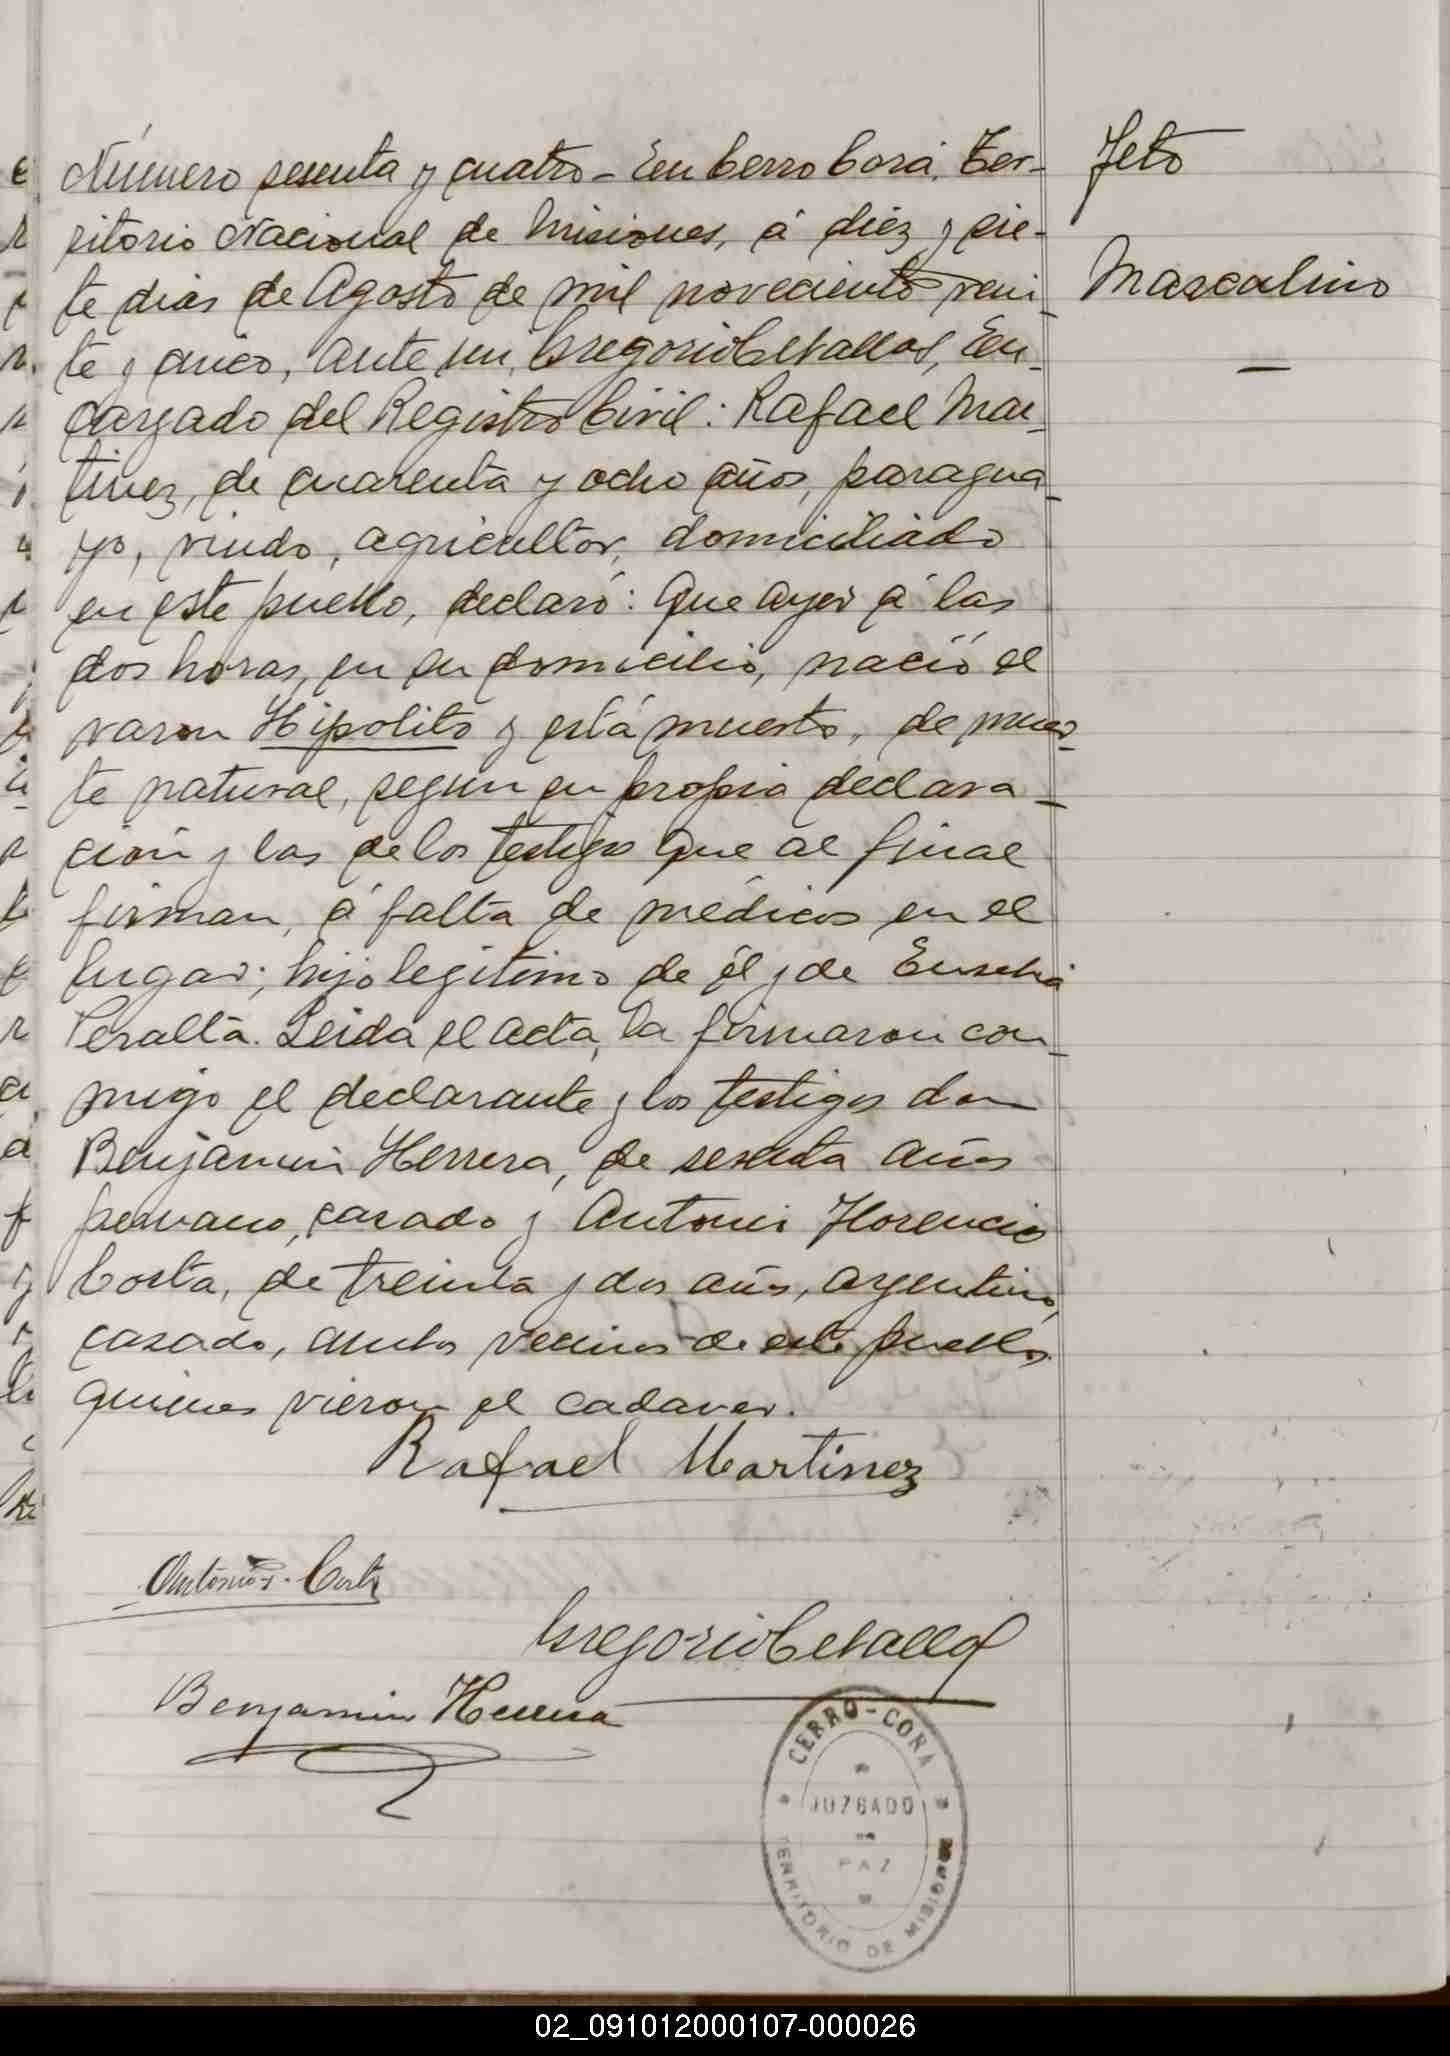 Número sesenta y cuatro - En Cerro Corá, Ter-
ritorio Nacional de Misiones, á diez y sie-
te dias de Agosto de mil novecientos vein-
te y cinco, ante mi, Gregorio Cevallos, En-
cargado del Registro Civil: Rafael Mar-
tinez, de cuarenta y ocho años, paragua-
yo, viudo, agricultor, domiciliado
en este pueblo, declaró: Que ayer á las
dos horas, en su domicilio, nació el
varon Hipolito y está muerto, de muer-
te natural, segun su propia declara-
ción y las de los testigos que al final
firman, á falta de médicos en el
lugar; hijo legitimo de él y de Eusebia
Peralta. Leida el acta, la firmaron con-
migo el declarante y los testigos don
Benjamin Herrera, de sesenta años
peruano, casado y Antonio Florencio
Costa, de treinta y dos años, argentino,
casado, ambos vecinos de este pueblo
quienes vieron el cadaver.
Feto
Masculino
Rafael Martinez
Antonio F. Costa
Gregorio Cevallos
Benjamin Herrera
CERRO-CORA
JUZGADO
PAZ
TERRITORIO DE MISIONES
02_091012000107-000026